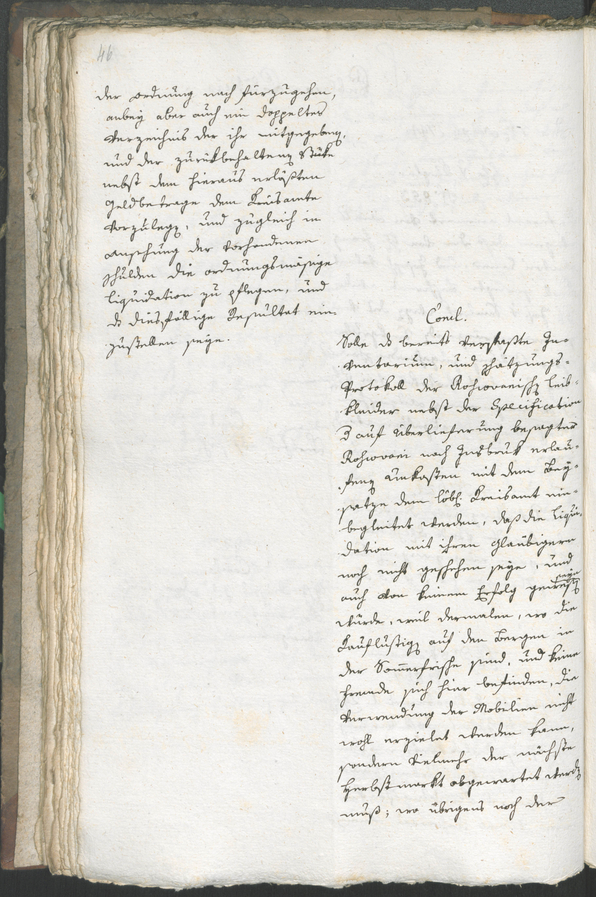 46
der ordnung nach fürzugehen,
anbey aber auch ein doppeltes
Verzeichnis der ihr mitgegeben,
und der zurükbehalteng Stüke
nebst dem hieraus erlößten
Geldbetrage dem Kreisamte
vorzulegg, und zugleich in
ansehung der vorhandenen
Schulden die ordnungsmäßige
liquidation zu pflegen, und
ds diesfällige Resultat ein-
zustellen seye.
Concl.
Solle ds bereits verfaßte In-
ventarium, und schätzungs-
Protokoll der Rohrweinischg leib-
kleider nebst der Specification
auf überlieferung besagter
nach Insbruk erlau-
feng unkosten mit dem Bey-
satze dem löbl. Kreisamt ein-
begleitet werden, daß die liqui-
dation mit ihren glaubigern
noch nicht geschehen seye, und
auch von keinem Erfolg gewest seyn
würde, weil dermalen, wo die
Kauflustigg auf den Bergen in
der Sommerfrische sind, und keine
fremde sich hier befinden, die
Verwendung der Mobilien nicht
wohl erzielet werden kann,
sondern vielmehr der nächste
Herbstmarkt abgewartet werdg
muß; wo übrigens noch der